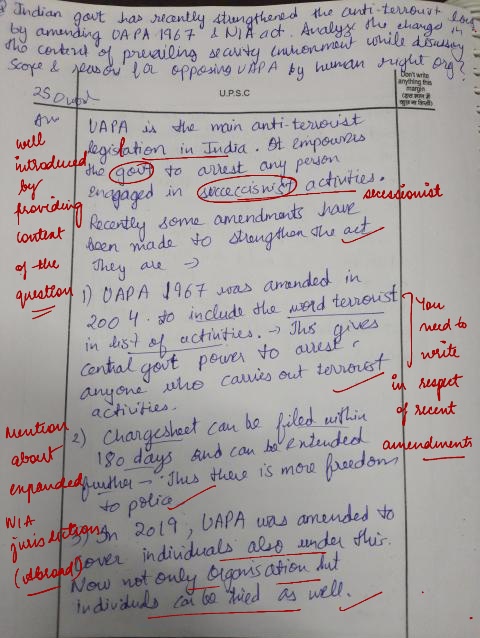 Indian govt has recently strengthened the anti-terrorist law
by amending UAPA 1967 & NIA act. Analyze the change in
the context of prevailing security environment while discussing
scope & reason for opposing UAPA by human right org?
250 word
U.P.S.C
Don't write
anything this
margin
Ans
UAPA is the main anti-terrorist
legislation in India. It empowers
the govt to arrest any person
engaged in secceccisnist activities.
secessionist
Recently some amendments have
been made to strengthen the act
They are →
well
introduced
by
providing
context
of the
question
1) UAPA 1967 was amended in
2004. to include the word terrorist
in list of activities. → This gives
central govt power to arrest
anyone who carries out terrorist
activities.
You
need to
write
in respect
of recent
amendments
2) Chargesheet can be filed within
180 days and can be extended
further → This there is more freedom
to police
Mention
about
expanded
NIA
jurisdiction
(Abroad)
3) In 2019, UAPA was amended to
cover individuals also under this.
Now not only Organisation but
individuals can be tried as well.